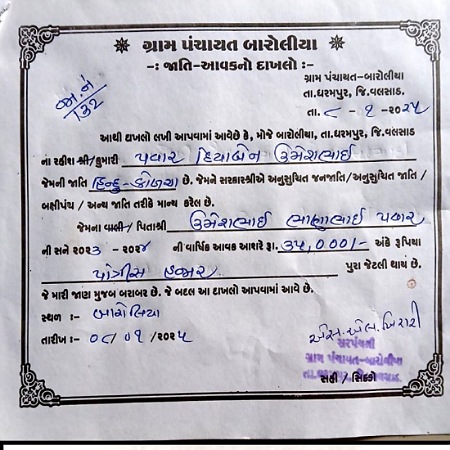 ગ્રામ પંચાયત બારોલીયા
-: જાતિ-આવકનો દાખલો :-
જા.નં
132
ગ્રામ પંચાયત-બારોલીયા
તા.ધરમપુર, જિ.વલસાડ
તા. ૮ - ૧ - ૨૦૨૫
આથી દાખલો લખી આપવામાં આવેછે કે, મોજે બારોલીયા, તા.ધરમપુર, જિ.વલસાડ
ના રહીશ શ્રી/કુમારી પવાર દિવ્યાબેન ઉમેશભાઈ
જેમની જાતિ હિન્દુ-કોળચા છે. જેમને સરકારશ્રીએ અનુસુચિત જનજાતિ/અનુસુચિત જાતિ /
બક્ષીપંચ / અન્ય જાતિ તરીકે માન્ય કરેલ છે.
જેમના વાલી/પિતાશ્રી ઉમેશભાઈ ભાણાભાઈ પવાર
ની સને ૨૦૨૩ - ૨૦૨૪ ની વાર્ષિક આવક આશરે રૂા. ૩૫,000/- અંકે રૂપિયા
પાંત્રીસ હજાર પુરા જેટલી થાય છે.
જે મારી જાણ મુજબ બરાબર છે. જે બદલ આ દાખલો આપવામાં આવે છે.
સ્થળ :- બારોલિયા
તારીખ :- ૦૮/૦૧/૨૦૨૫
સરપંચની
ગ્રામ પંચાયત-બારોલીયા
સહી / સિક્કો